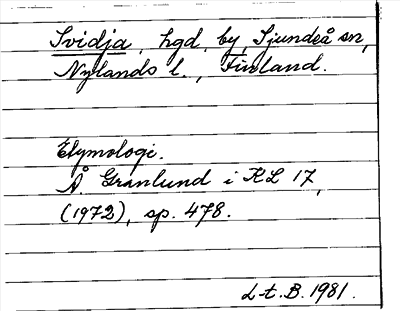 Svidja, hgd, by, Sjundeå sn,
Nylands l., Finland.
Etymologi.
Å. Granlund i KL 17,
(1972), sp. 478.
L-t. B. 1981.